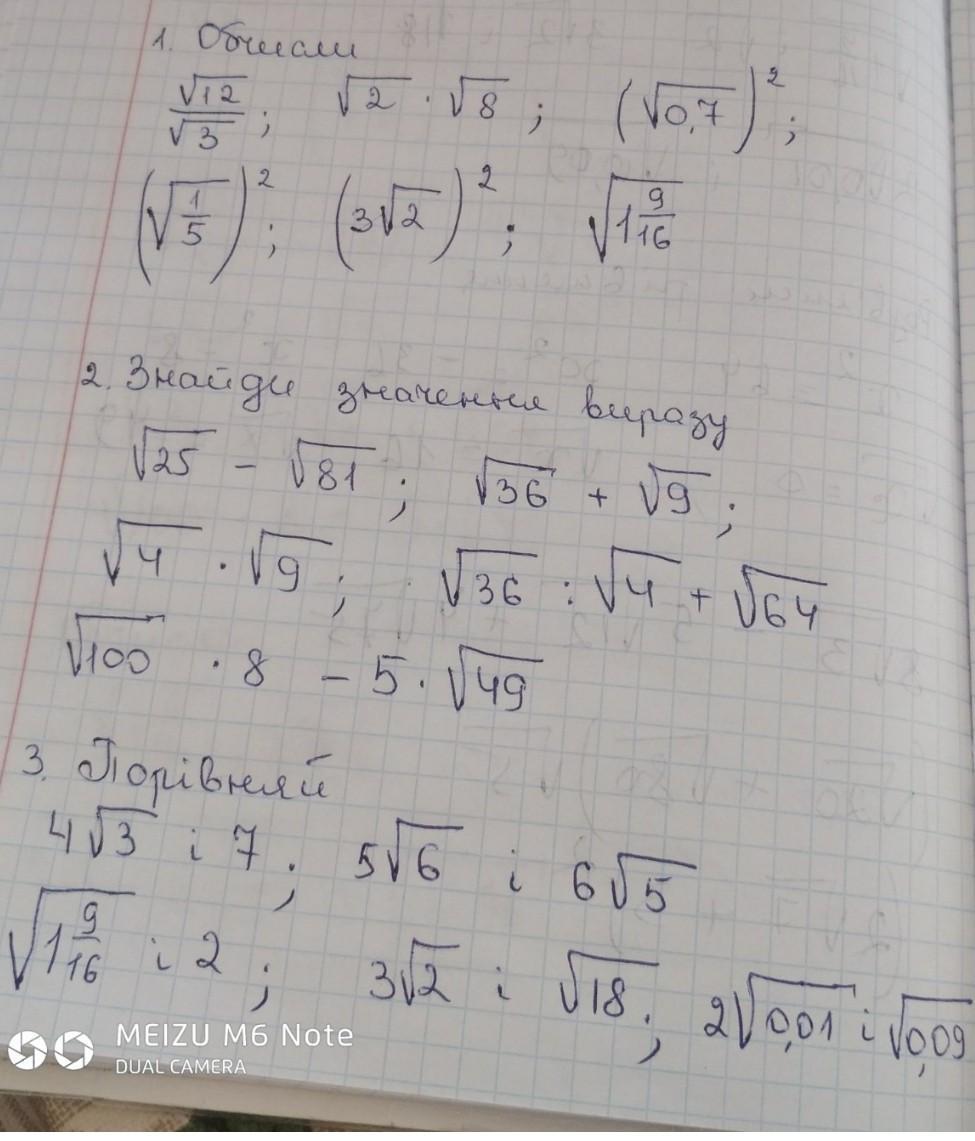 1. Обчисли
√12/√3; √2 · √8; (√0,7)²;
(√1/5)²; (3√2)²; √1 9/16
2. Знайди значення виразу
√25 - √81; √36 + √9;
√4 · √9; √36 : √4 + √64
√100 · 8 - 5 · √49
3. Порівняй
4√3 і 7; 5√6 і 6√5
√1 9/16 і 2; 3√2 і √18; 2√0,01 і √0,09
MEIZU M6 Note
DUAL CAMERA